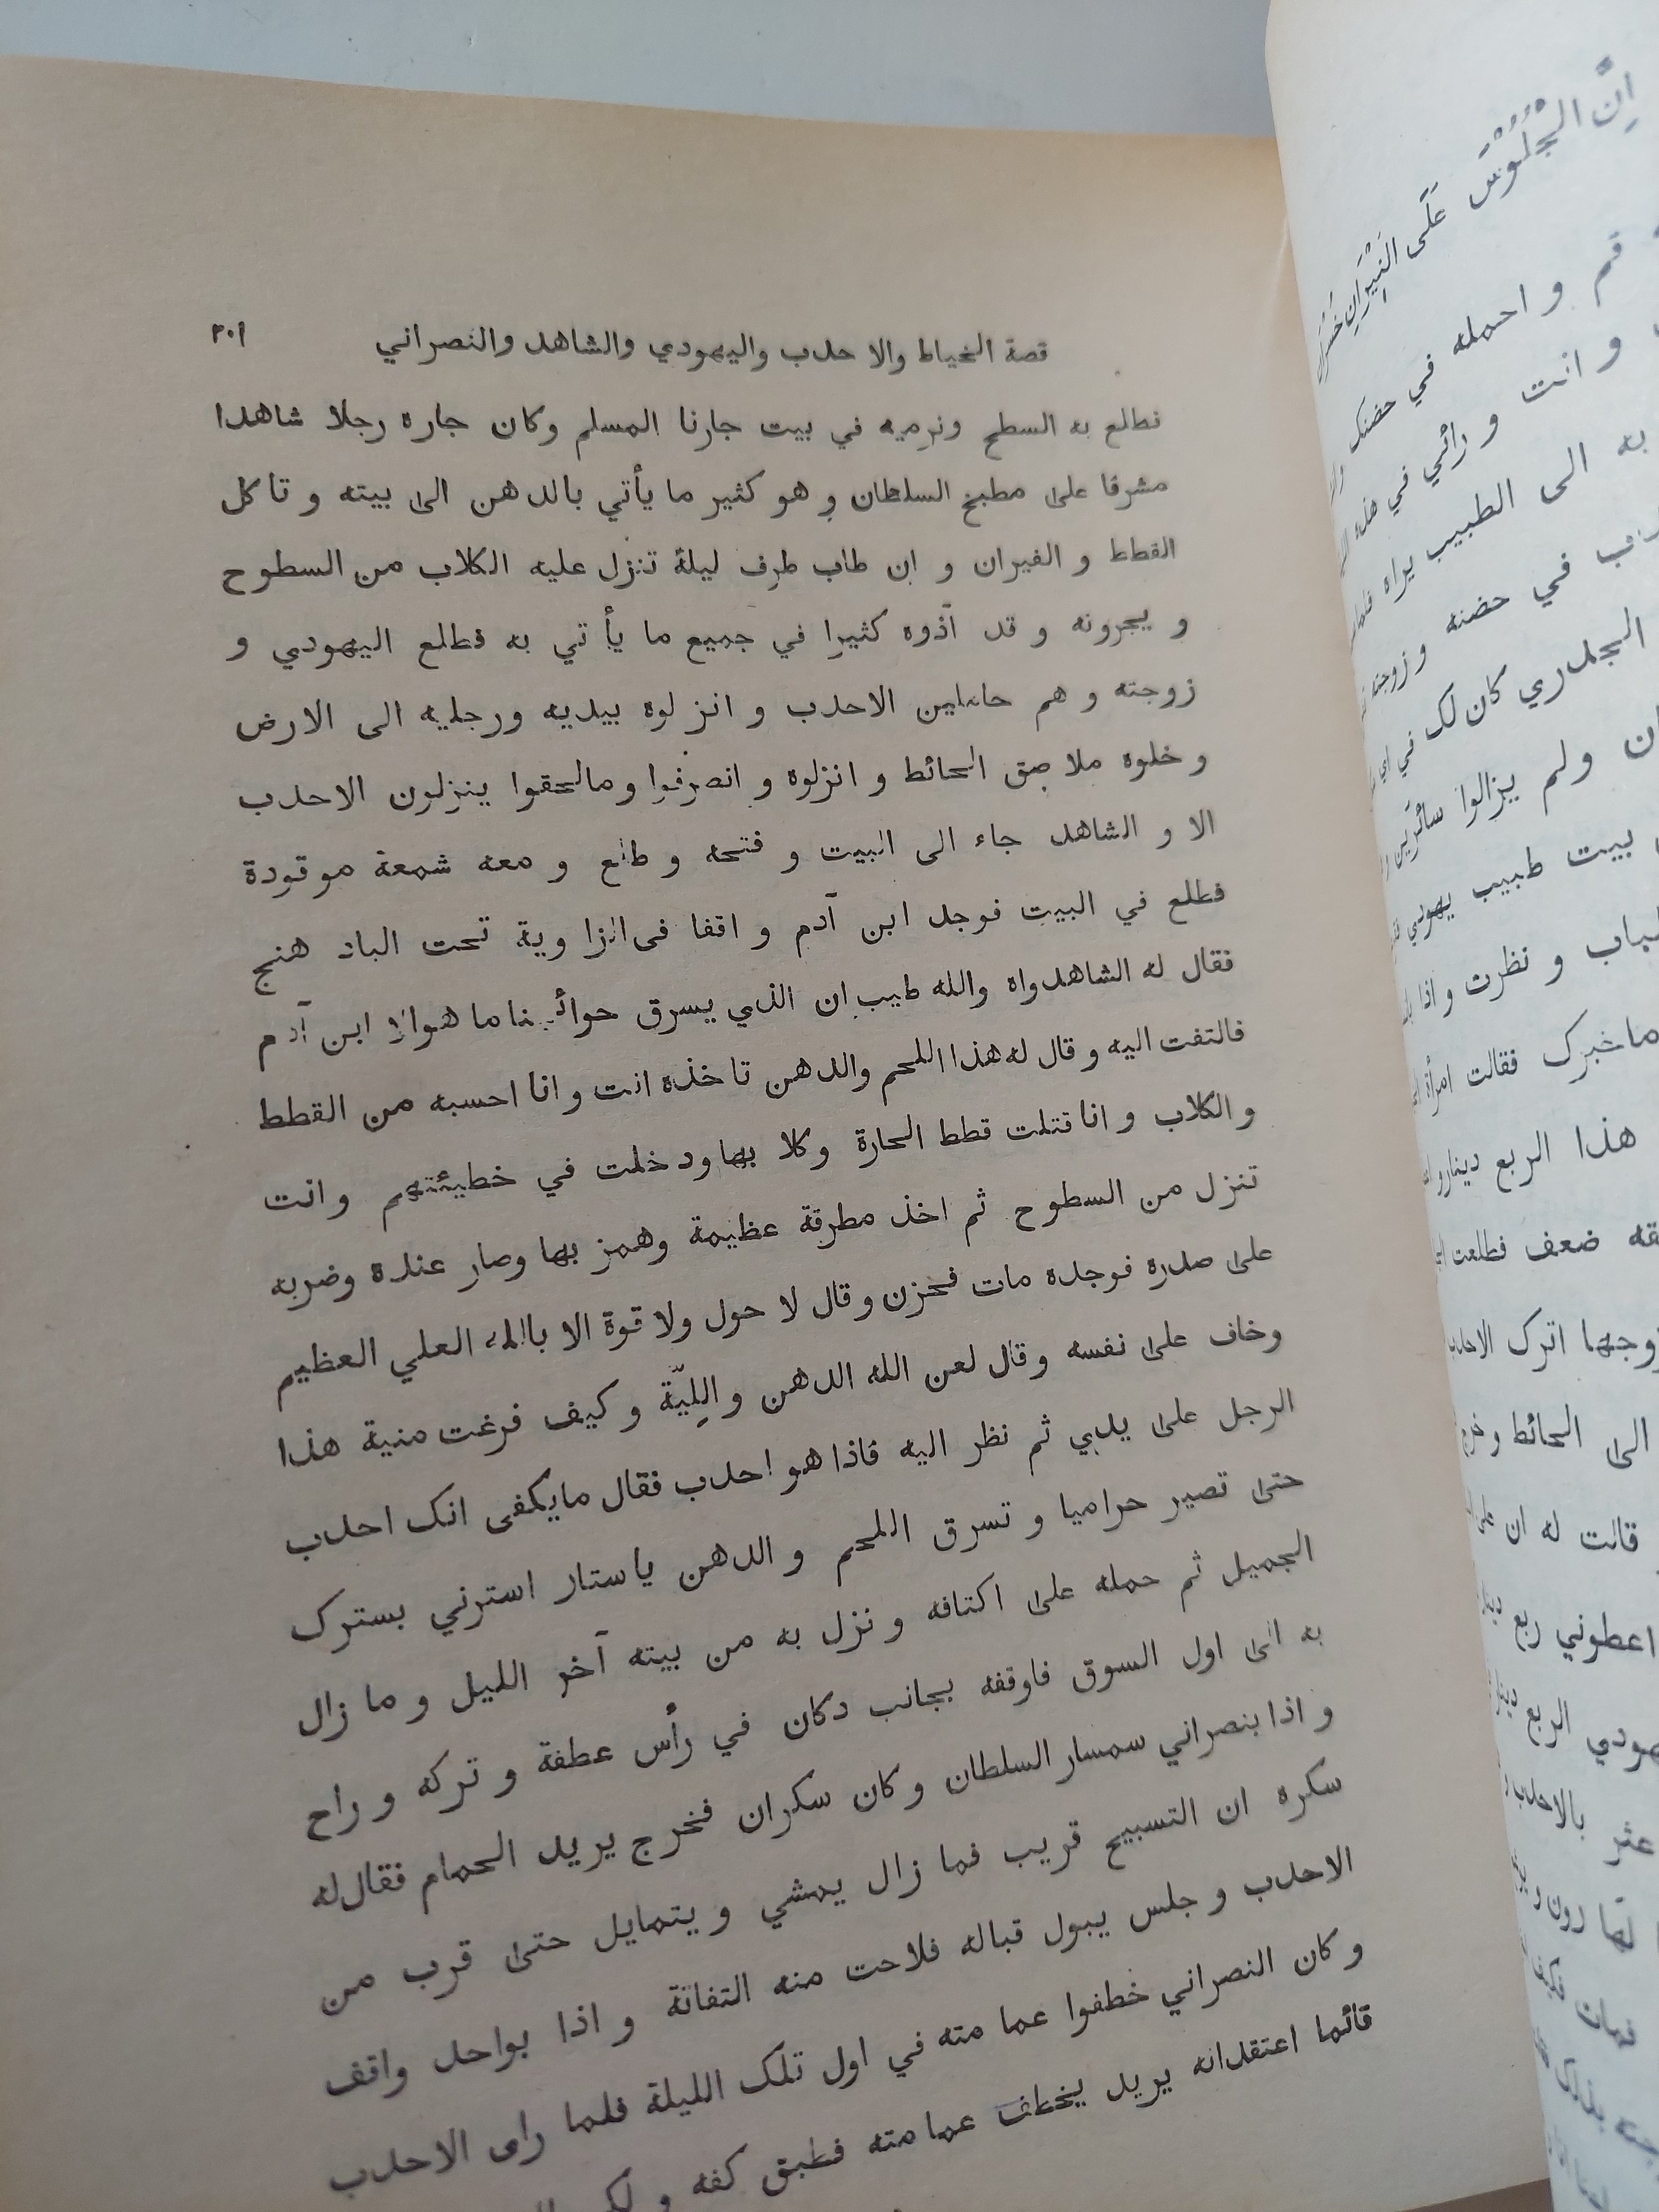 قصة الخياط والاحدب واليهودي والشاهد والنصراني ٢٠١
فطلع به السطح ونرميه في بيت جارنا المسلم وكان جاره رجلا شاهدا
مشرفا على مطبخ السلطان و هو كثير ما يأتي بالدهن الى بيته و تاكل
القطط و الفيران و ان طاب طرف ليلة تنزل عليه الكلاب من السطوح
و يجرونه و قد آذوه كثيرا في جميع ما يأتي به فطلع اليهودي و
زوجته و هم حاملين الاحدب و انزلوه بيديه ورجليه الى الارض
و خلوه ملاصق الحائط و انزلوه و انصرفوا ومالحقوا ينزلون الاحدب
الا و الشاهد جاء الى البيت و فتحه و طلع و معه شمعة موقودة
فطلع في البيت فوجد ابن آدم واقفا فى الزاوية تحت الباد هنج
فقال له الشاهد واه والله طيب ان الذي يسرق حوائجنا ما هو الا ابن آدم
فالتفت اليه و قال له هذا اللحم والدهن تاخذه انت و انا احسبه من القطط
و الكلاب و انا قتلت قطط الحارة وكلابها ودخلت في خطيئتهم وانت
تنزل من السطوح ثم اخذ مطرقة عظيمة وهمز بها وصار عنده وضربه
على صدره فوجده مات فحزن وقال لا حول ولا قوة الا بالله العلي العظيم
وخاف على نفسه وقال لعن الله الدهن و اللِيّة و كيف فرغت منية هذا
الرجل على يدي ثم نظر اليه فاذا هو احدب فقال مايكفى انك احدب
حتى تصير حراميا و تسرق اللحم و الدهن ياستار استرني بسترك
الجميل ثم حمله على اكتافه و نزل به من بيته آخر الليل و ما زال
به الى اول السوق فاوقفه بجانب دكان في رأس عطفة و تركه و راح
و اذا بنصراني سمسار السلطان و كان سكران فخرج يريد الحمام فقال له
سكره ان التسبيح قريب فما زال يمشي و يتمايل حتى قرب من
الاحدب و جلس يبول قباله فلاحت منه التفاتة و اذا بواحد واقف
و كان النصراني خطفوا عمامته في اول تلك الليلة فلما راى الاحدب
قائما اعتقد انه يريد يخطف عمامته فطبق كفه و لكم
اِنَّ الْجُلُوْسَ عَلَى النِّيْرَانِ
قم و احمله في حضنك
و انت و رائي في هذه
به الى الطبيب يراه
في حضنه و زوجته
الجدري كان لك في اي
ولم يزالوا سائرين
بيت طبيب يهودي
و نظرت و اذا
ماخبرك فقالت امرأة
هذا الربع دينار
ضعف فطلعت
اترك الاحدب
الى الحائط
قالت له ان
اعطوني ربع
الربع
عثر بالاحدب